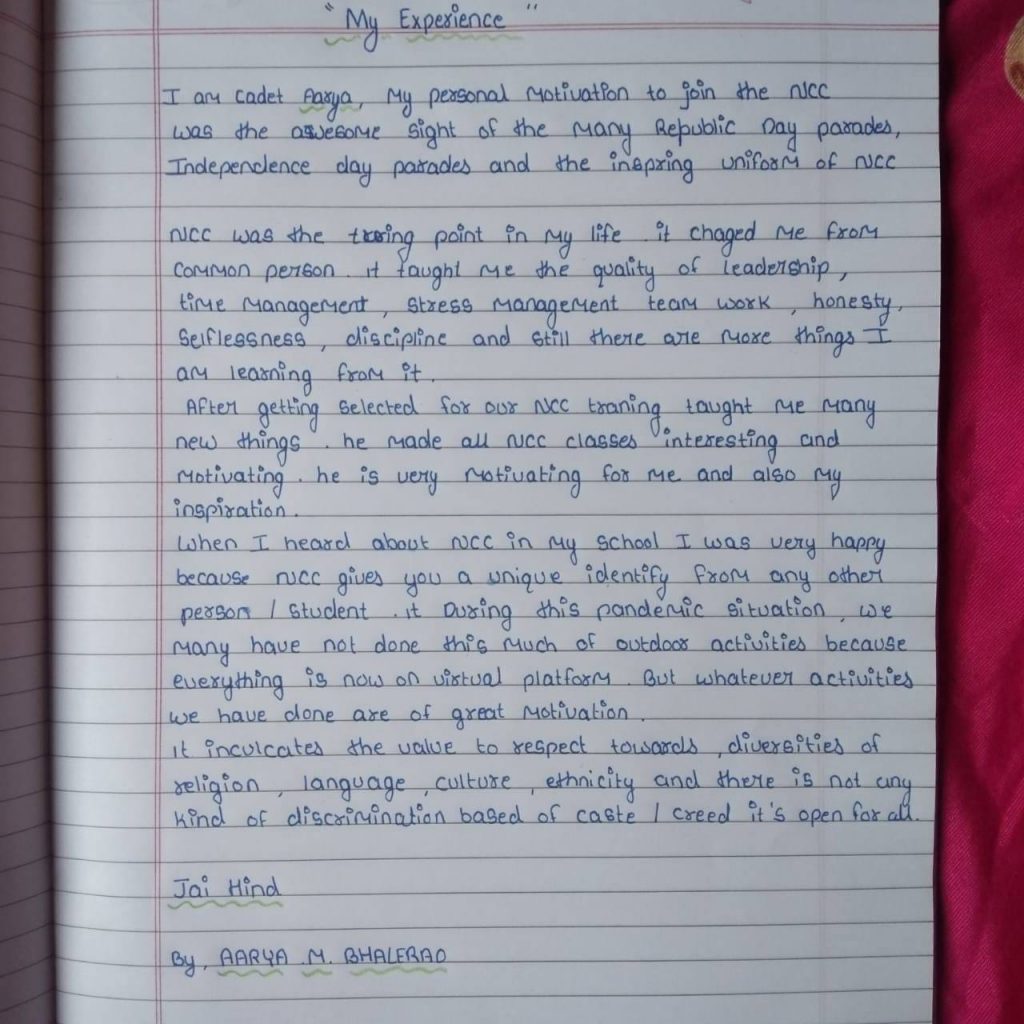 "My Experience"
I am cadet Aarya, My personal motivation to join the NCC
was the awesome sight of the many Republic Day parades,
Independence day parades and the inspring uniform of NCC
NCC was the point in my life. it chaged me from
common person. it taught me the quality of leadership,
time management, stress management team work, honesty,
selflessness, discipline and still there are more things I
am learning from it.
After getting selected for our NCC traning taught me many
new things. he made all NCC classes interesting and
motivating. he is very motivating for me and also my
inspiration.
When I heard about NCC in my school I was very happy
because NCC gives you a unique identify from any other
person / student. it During this pandemic situation, we
many have not done this much of outdoor activities because
everything is now on virtual platform. But whatever activities
we have done are of great motivation.
it inculcates the value to respect towards, diversities of
religion, language, culture, ethnicity and there is not any
kind of discrimination based of caste / creed it's open for all.
Jai Hind
By, AARYA M. BHALERAO